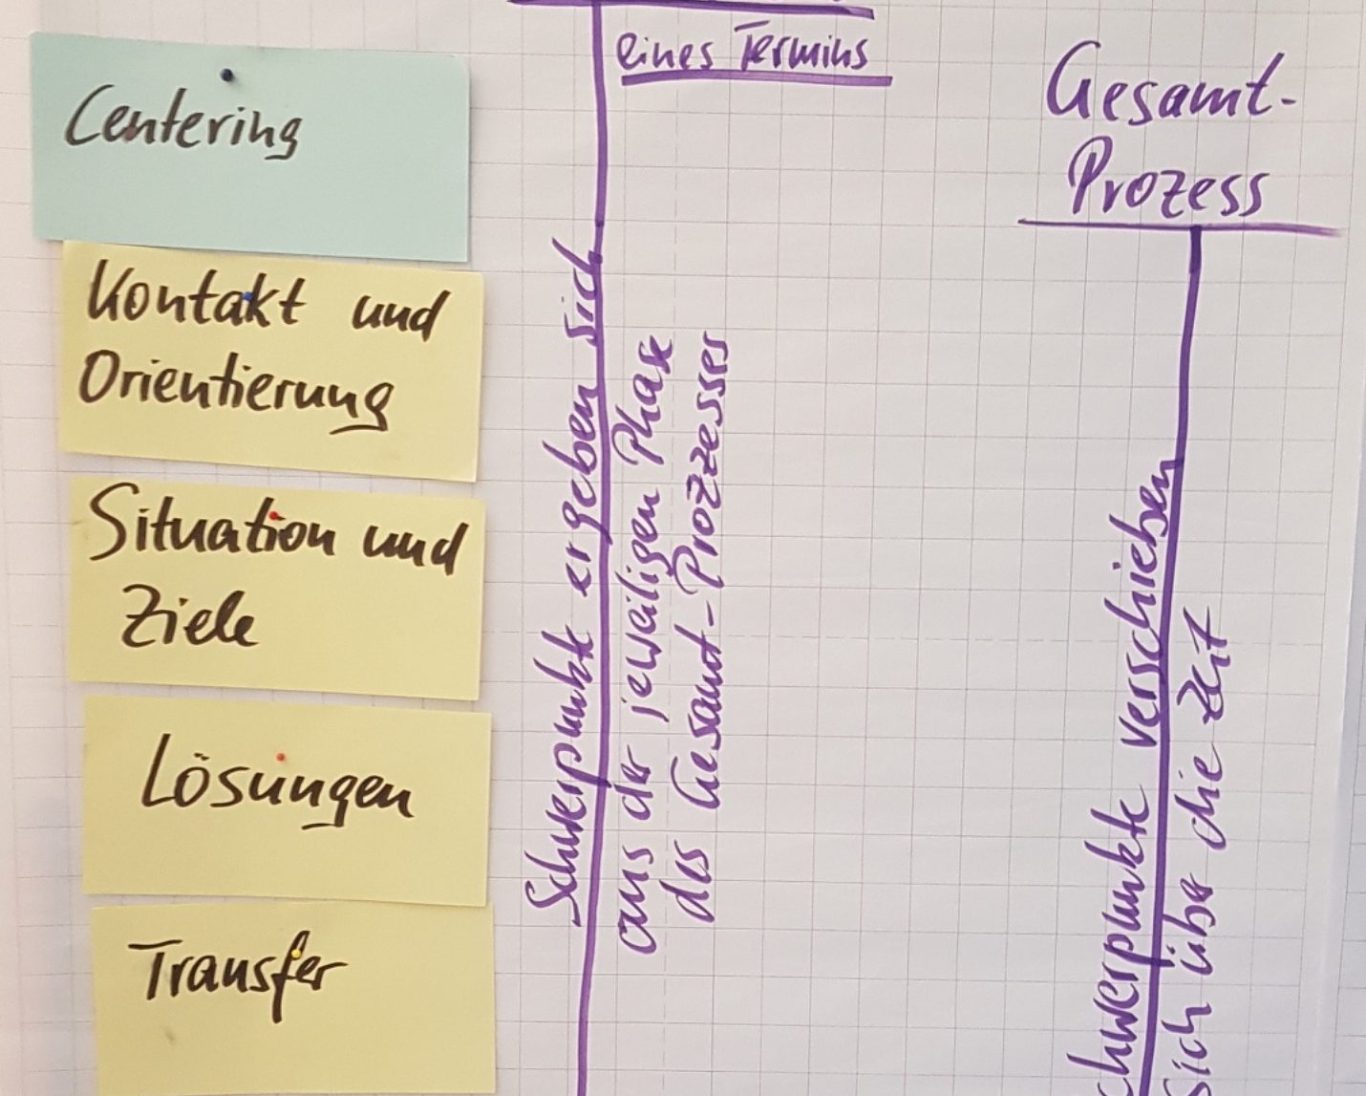 Centering
Kontakt und
Orientierung
Situation und
Ziele
Lösungen
Transfer
eines Termins
Schwerpunkte ergeben sich
aus der jeweiligen Phase
des Gesamt-Prozzesses
Gesamt-
Prozess
chwerpunkte verschieben
sich über die Zeit